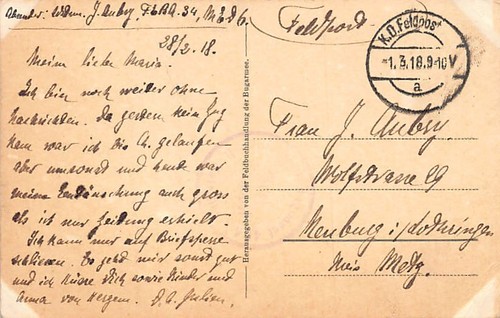 Absender: Ldstm. J. Aubry, F.E.B.A. 34, M.E.d.6.
28/2. 18.
Meine liebe Maria.
Ich bin noch weiter ohne
Nachrichten. Da gestern kein Zug
kam war ich bis Ch. gelaufen
aber umsonst und heute war
meine Enttäuschung auch gross
als ich nur Zeitung erhielt.
Ich kann nur auf Briefsperre
schliessen. Es geht mir sonst gut
und ich küsse Dich sowie Kinder und
Anna von Herzen. D. A. Julien.
Herausgegeben von der Feldbuchhandlung der Bugarmee.
Feldpost
K.D. Feldpost
-1.3.18.9-10V
a
Frau J. Aubry
Wolfstrasse 29
Neuburg i/Lothringen
Kreis Metz.